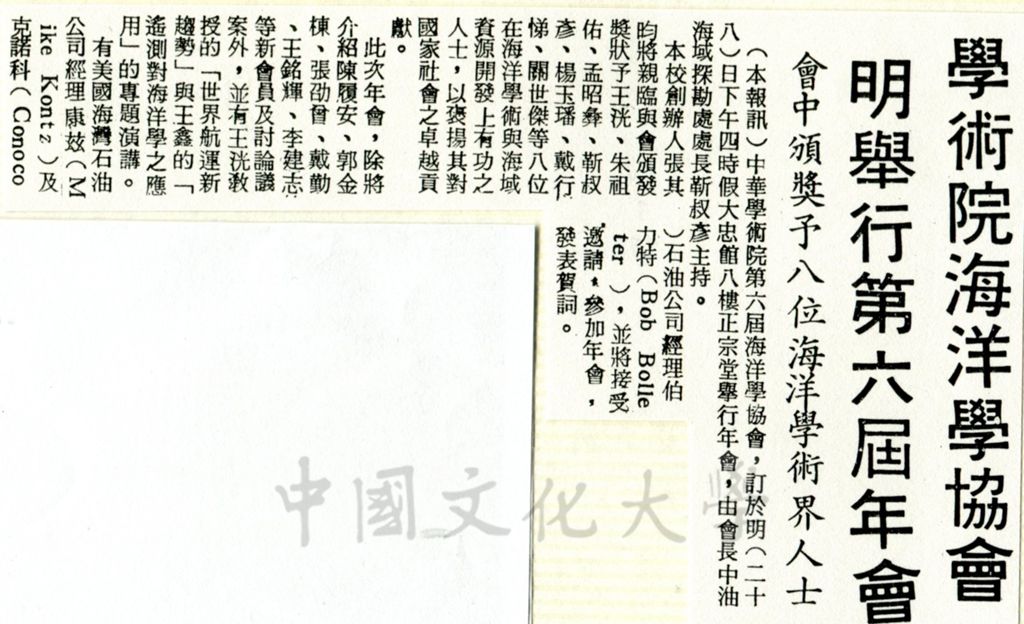 學術院海洋學協會
明舉行第六屆年會
會中頒獎予八位海洋學術界人士
（本報訊）中華學術院第六屆海洋學協會，訂於明（二十
八）日下午四時假大忠館八樓正宗堂舉行年會，由會長中油
海域探勘處處長靳叔彥主持。
本校創辦人張其
昀將親臨與會頒發
獎狀予王洸、朱祖
佑、孟昭彝、靳叔
彥、楊玉璠、戴行
悌、關世傑等八位
在海洋學術與海域
資源開發上有功之
人士，以褒揚其對
國家社會之卓越貢
獻。
此次年會，除將
介紹陳履安、郭金
棟、張劭曾、戴勤
、王銘輝、李建志
等新會員及討論議
案外，並有王洸教
授的「世界航運新
趨勢」與王鑫的「
遙測對海洋學之應
用」的專題演講。
有美國海灣石油
公司經理康茲（M
ike Kontz）及
克諾科（Conoco
）石油公司經理伯
力特（Bob Bolle
ter ），並將接受
邀請，參加年會，
發表賀詞。
中國文化大學